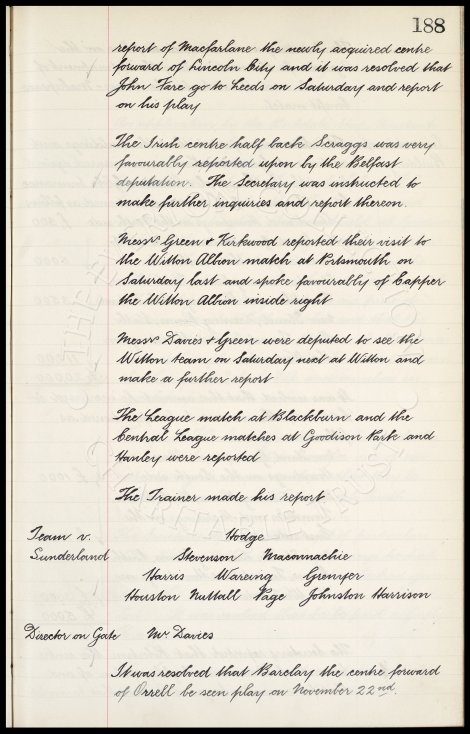 188
report of Macfarlane the newly acquired centre
forward of Lincoln City and it was resolved that
John Fare go to Leeds on Saturday and report
on his play
The Irish centre half back Scraggs was very
favourably reported upon by the Belfast
deputation. The Secretary was instructed to
make further inquiries and report thereon.
Messrs Green & Kirkwood reported their visit to
the Witton Albion match at Portsmouth on
Saturday last and spoke favourably of Capper
the Witton Albion inside right
Messrs Davies & Green were deputed to see the
Witton team on Saturday next at Witton and
make a further report
The League match at Blackburn and the
Central League matches at Goodison Park and
Hanley were reported
The Trainer made his report
Team v. Hodge
Sunderland Stevenson Maconnachie
Harris Wareing Grenyer
Houston Nuttall Page Johnston Harrison
Director on Gate Mr Davies
It was resolved that Barclay the centre forward
of Orrell be seen play on November 22nd.